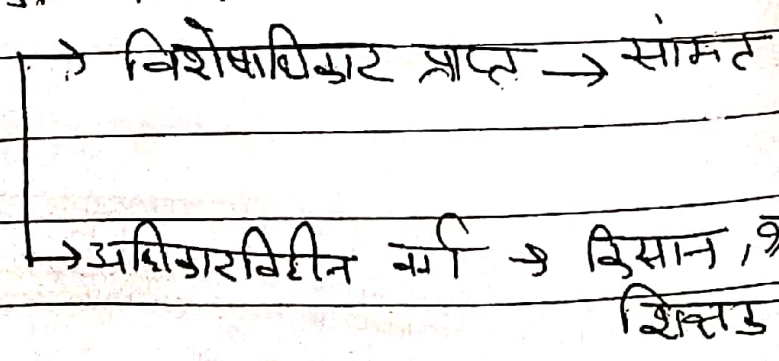 → विशेषाधिकार प्राप्त → सांमत
→ अधिकारविहीन वर्ग → किसान,
शिक्षक